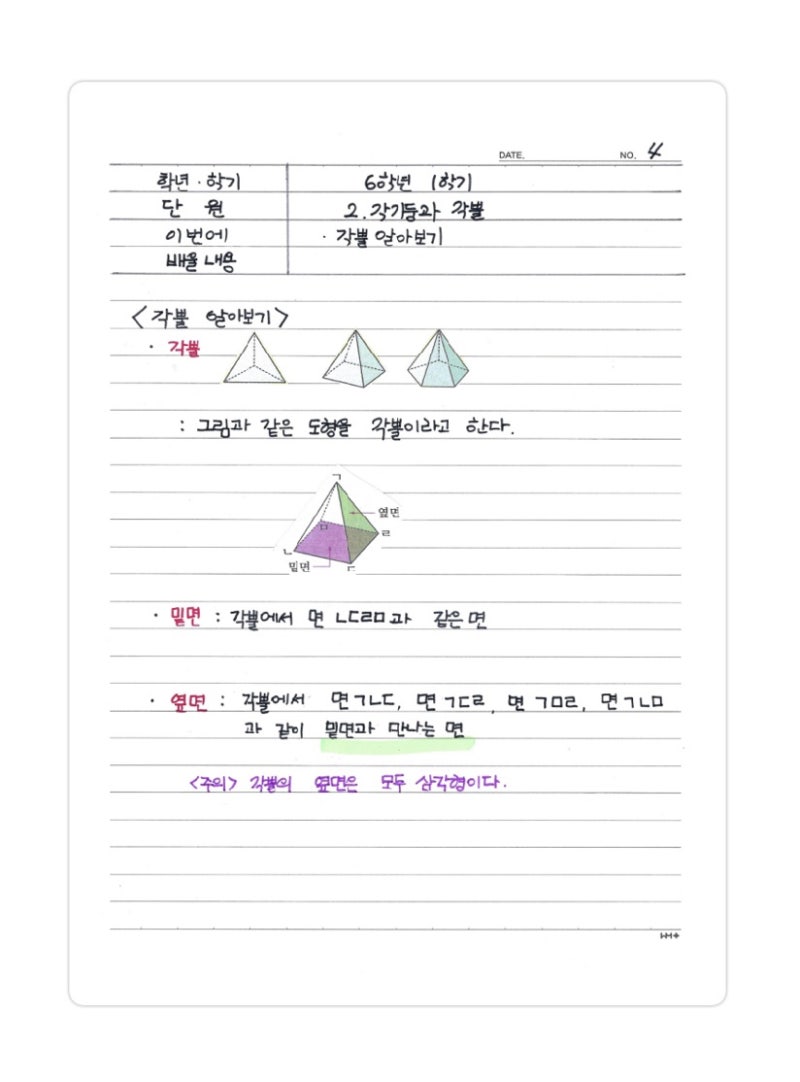 DATE. NO. 4
학년·학기 6학년 1학기
단 원 2. 각기둥과 각뿔
이번에 · 각뿔 알아보기
배울 내용
<각뿔 알아보기>
· 각뿔
: 그림과 같은 도형을 각뿔이라고 한다.
ㄱ
옆면
ㅁ ㄹ
ㄴ
밑면 ㄷ
· 밑면 : 각뿔에서 면 ㄴㄷㄹㅁ과 같은 면
· 옆면 : 각뿔에서 면 ㄱㄴㄷ, 면 ㄱㄷㄹ, 면 ㄱㅁㄹ, 면 ㄱㄴㅁ
과 같이 밑면과 만나는 면
<주의> 각뿔의 옆면은 모두 삼각형이다.